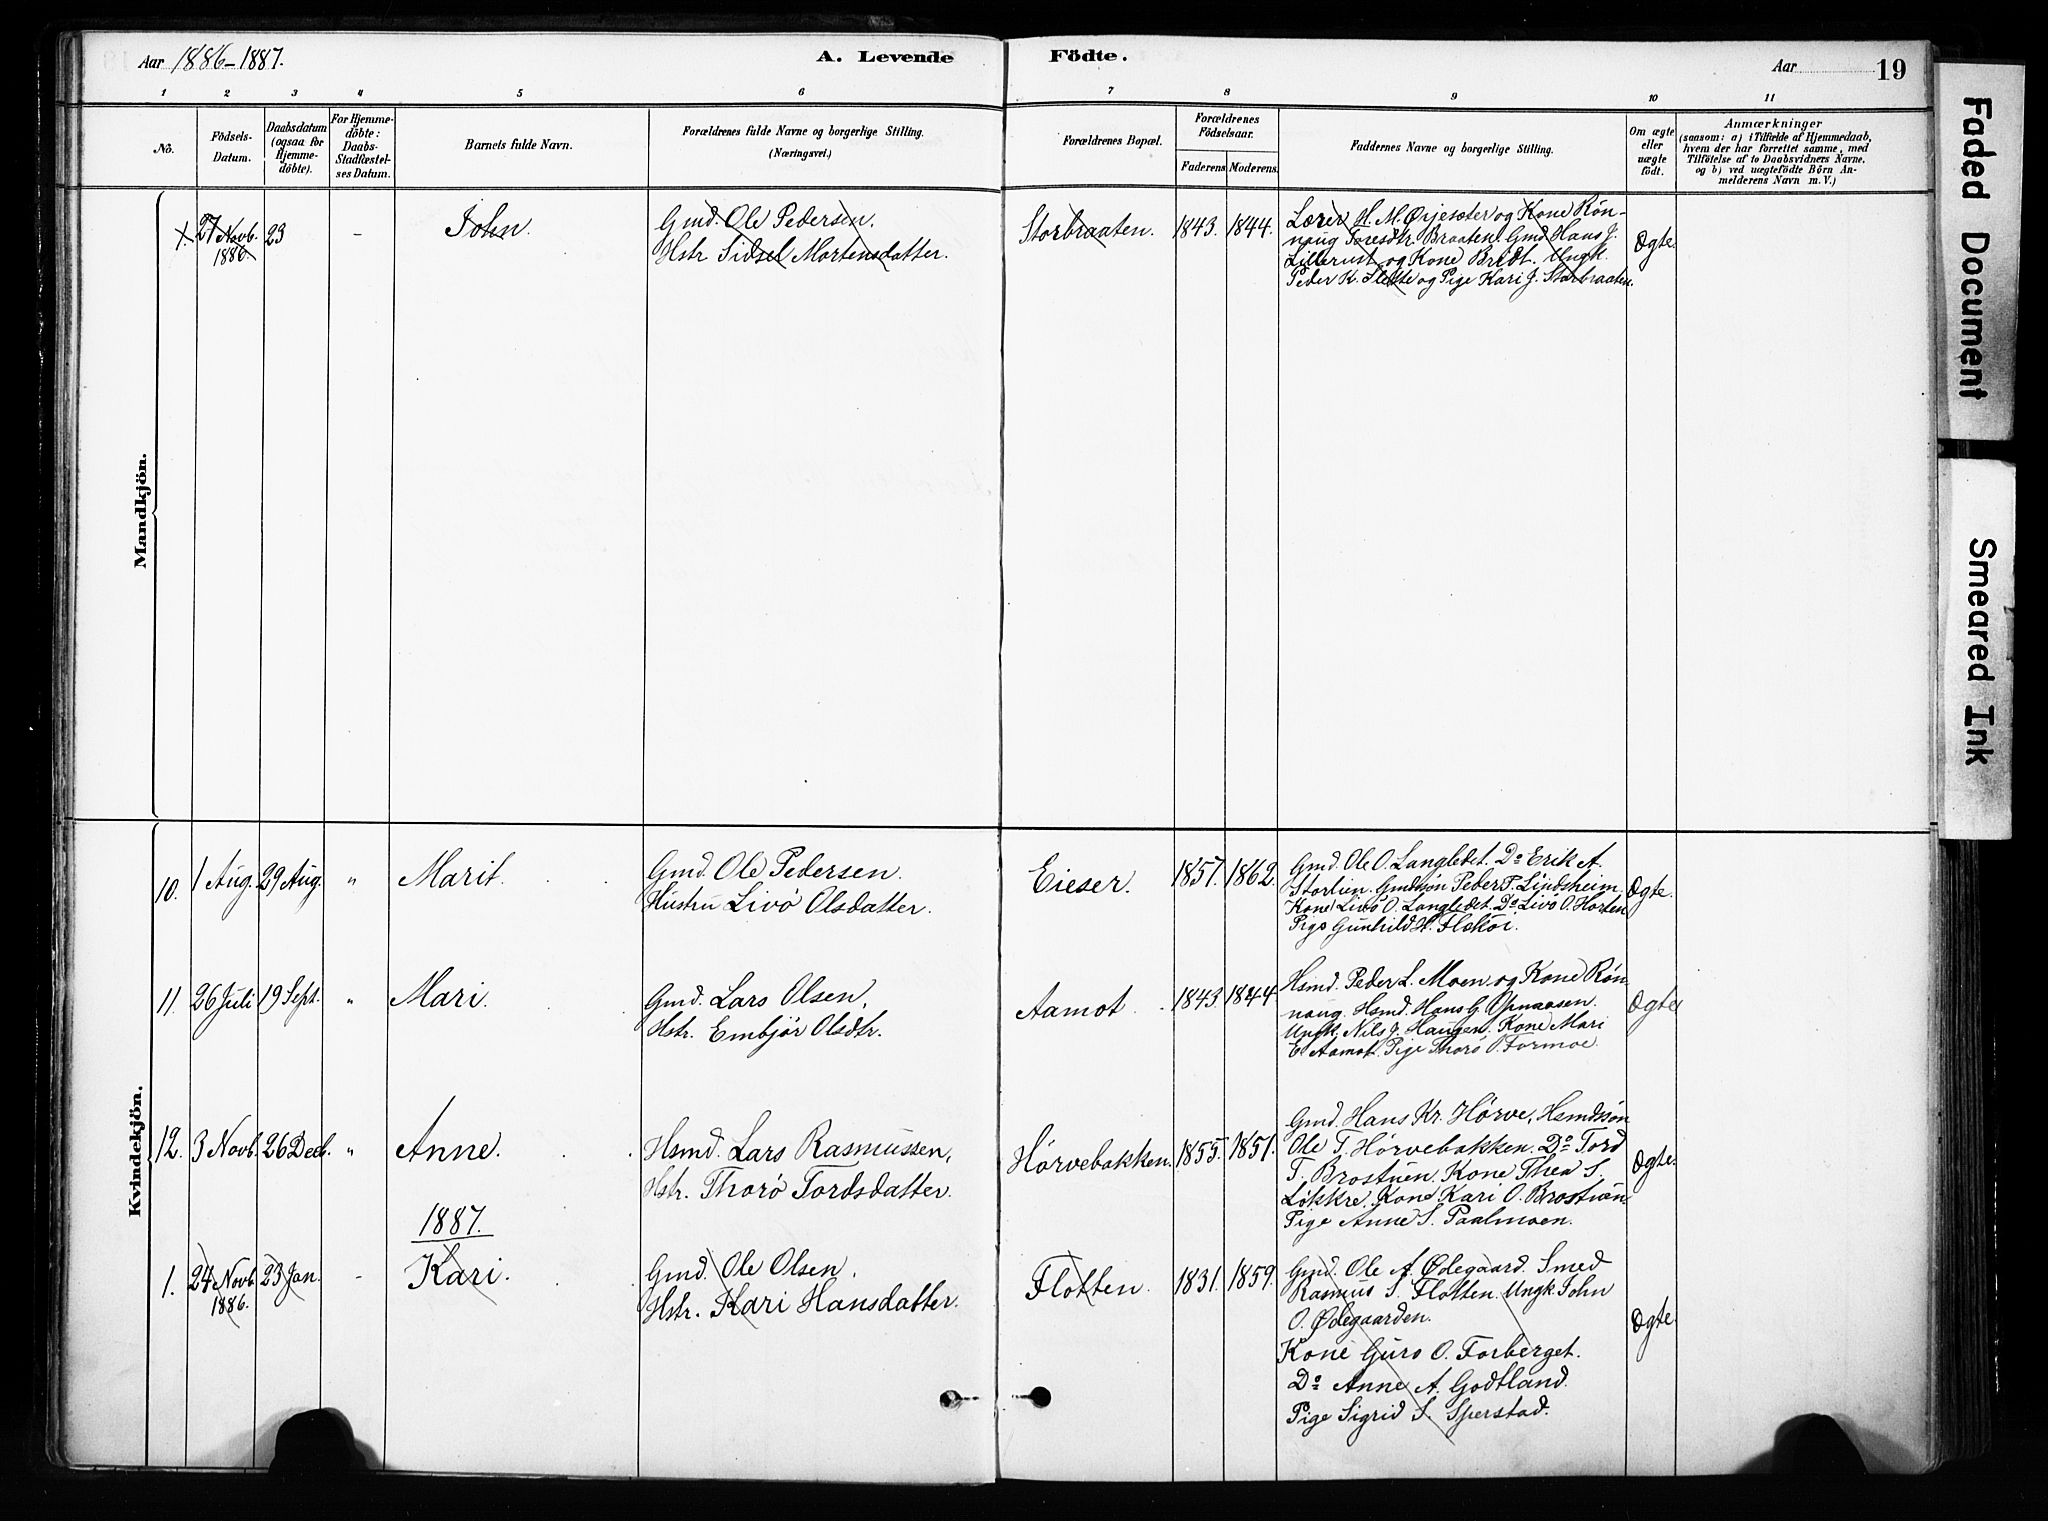 Aar 1886-1887.
A. Levende Födte.
Aar 19
1 2 3 4 5 6 7 8 9 10 11
No.
Födsels-Datum.
Daabsdatum (ogsaa for Hjemme-döbte).
For Hjemme-döbte: Daabs-Stadfæstel-ses Datum.
Barnets fulde Navn.
Forældrenes fulde Navne og borgerlige Stilling.
(Næringsvei.)
Forældrenes Bopæl.
Forældrenes Födselsaar.
Faderens Moderens.
Faddernes Navne og borgerlige Stilling.
Om ægte eller uægte födt.
Anmærkninger
(saasom: a) i Tilfælde af Hjemmedaab,
hvem der har forrettet samme, med
Tilföielse af to Daabsvidners Navne,
og b) ved uægtefödte Börn An-
melderens Navn m. V.)
Mandkjön.
1. 27 Novb. 1886. 23 - John.
Gmd. Ole Pedersen.
Hstr. Sidsel Mortensdatter.
Storbraaten. 1843. 1844.
Lærer H. M. Ørjesæter og Kone Røn-
naug Toresdtr. Braaten. Gmd. Hans J.
Lillerust og Kone Bredt. Ungk.
Peder K. Slette og Pige Kari J. Storbraaten.
Ægte.
Kvindekjön.
10. 1 Aug. 29 Aug. " Marit.
Gmd. Ole Pedersen.
Hustru Livö Olsdatter.
Eieser. 1857. 1862.
Gmd. Ole O. Langledet. Do Erik A.
Storlien. Gmdssøn Peder P. Lindsheim
Kone Livö O. Langledet. Do Livö O. Horten
Pige Gunhild H. Flekøi.
Ægte.
11. 26 Juli 19 Sept. " Mari.
Gmd. Lars Olsen,
Hstr. Embjör Olsdtr.
Aamot. 1843. 1844.
Hsmd. Peder L. Moen og Kone Røn-
naug. Hsmd. Hans G. Opnaasen.
Ungk. Nils J. Haugen. Kone Mari
E. Aamot. Pige Thorö O. Formoe.
Ægte
12. 3 Novb. 26 Decb. " Anne.
Hsmd. Lars Rasmussen,
Hstr. Thorö Tordsdatter.
Hörvebakken. 1855. 1851.
Gmd. Hans Kr. Hörve, Hsmdssøn
Ole T. Hörvebakken. Do Tord
T. Brostuen. Kone Thea S.
Løkkre. Kone Kari O. Brostuen
Pige Anne S. Paalmoen.
Ægte.
1887.
1. 24 Novb. 1886. 23 Jan. - Kari.
Gmd. Ole Olsen.
Hstr. Kari Hansdatter.
Flotten. 1831. 1859.
Gmd. Ole A. Ødegaard. Smed
Rasmus S. Flotten. Ungk. John
O. Ødegaarden.
Kone Guro O. Forberget.
Do Anne A. Godtland.
Pige Sigrid S. Sperstad.
Ægte.
Faded Document
Smeared Ink